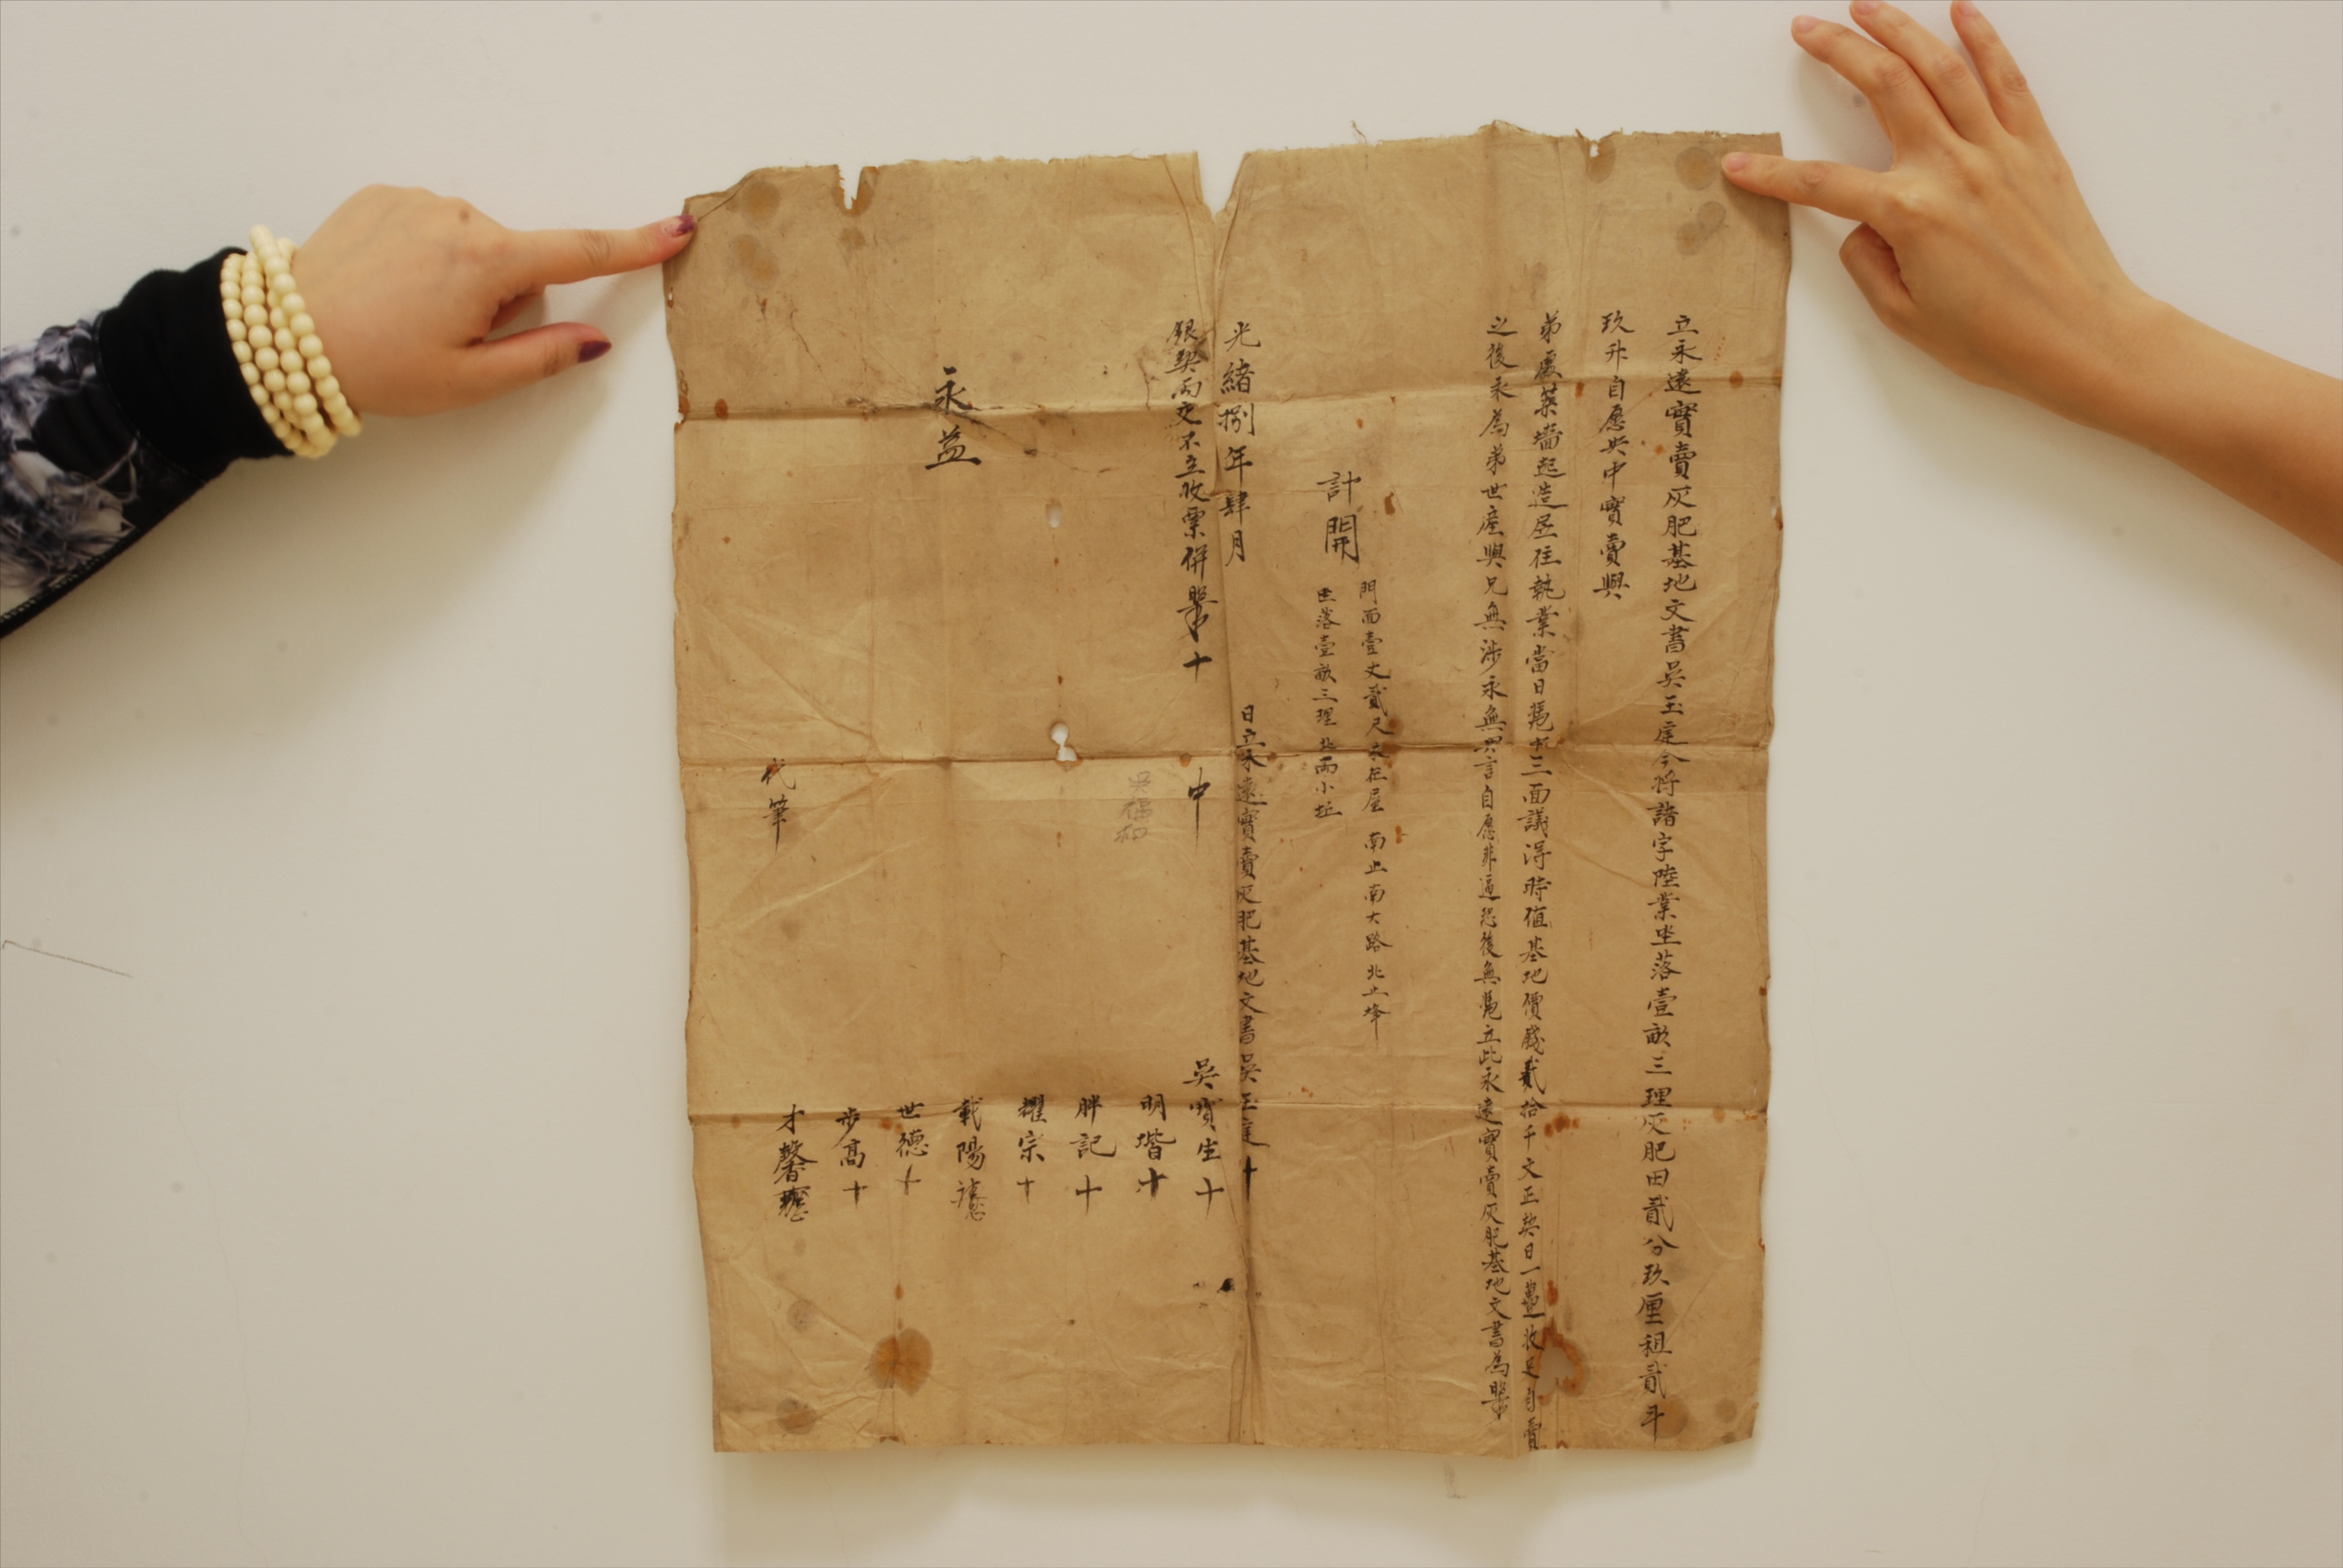 立永遠實賣灰肥基地文書吳玉庭今將諸字陸業坐落壹畝三理灰肥田貳分玖厘租貳斗
玖升自愿央中實賣與
弟處築墻起造屋住執業當日憑中三面議得時值基地價錢貳拾千文正契日一並收足自賣
之後永為弟世產與兄無涉永無異言自愿非逼恐後無憑立此永遠實賣灰肥基地文書為照
計開
門面壹丈貳尺 屋 南止南大路北止
坐落壹畝三理
光緒捌年肆月
日立永遠實賣灰肥基地文書吳玉庭十
銀契兩交不立收票併照十
中
吳寶生十
吳福和
明堦十
胖記十
耀宗十
載陽
永益
世德十
步高十
代筆
才馨